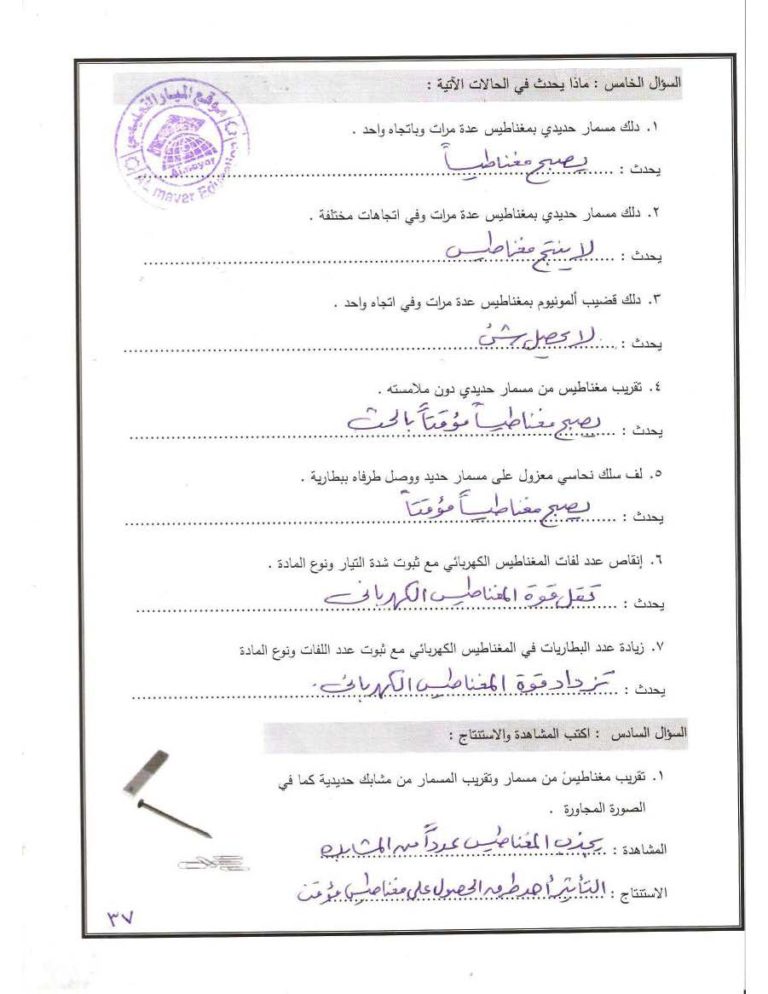 السؤال الخامس : ماذا يحدث في الحالات الآتية :
موقع الميار التعليمي
Almayar
AL mayar Edu
١. دلك مسمار حديدي بمغناطيس عدة مرات وباتجاه واحد .
يحدث : يصبح مغناطيساً
٢. دلك مسمار حديدي بمغناطيس عدة مرات وفي اتجاهات مختلفة .
يحدث : لا ينتج مغناطيس
٣. دلك قضيب ألمونيوم بمغناطيس عدة مرات وفي اتجاه واحد .
يحدث : لا يحصل شئ
٤. تقريب مغناطيس من مسمار حديدي دون ملامسته .
يحدث : يصبح مغناطيساً مؤقتاً بالحث
٥. لف سلك نحاسي معزول على مسمار حديد ووصل طرفاه ببطارية .
يحدث : يصبح مغناطيساً مؤقتاً
٦. إنقاص عدد لفات المغناطيس الكهربائي مع ثبوت شدة التيار ونوع المادة .
يحدث : تقل قوة المغناطيس الكهربائي
٧. زيادة عدد البطاريات في المغناطيس الكهربائي مع ثبوت عدد اللفات ونوع المادة
يحدث : تزداد قوة المغناطيس الكهربائي .
السؤال السادس : اكتب المشاهدة والاستنتاج :
١. تقريب مغناطيس من مسمار وتقريب المسمار من مشابك حديدية كما في
الصورة المجاورة .
المشاهدة : يجذب المغناطيس عدداً من المشابك
الاستنتاج : التأثير أحد طرق الحصول على مغناطيس مؤقت
٣٧